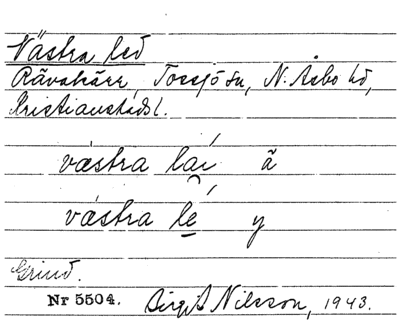 Västra led
Rävakärr, Tossjö sn, N. Åsbo hd,
Kristianstads l.
västra lai ä
västra le y
Grind.
Nr 5504. Birgit Nilsson, 1943.